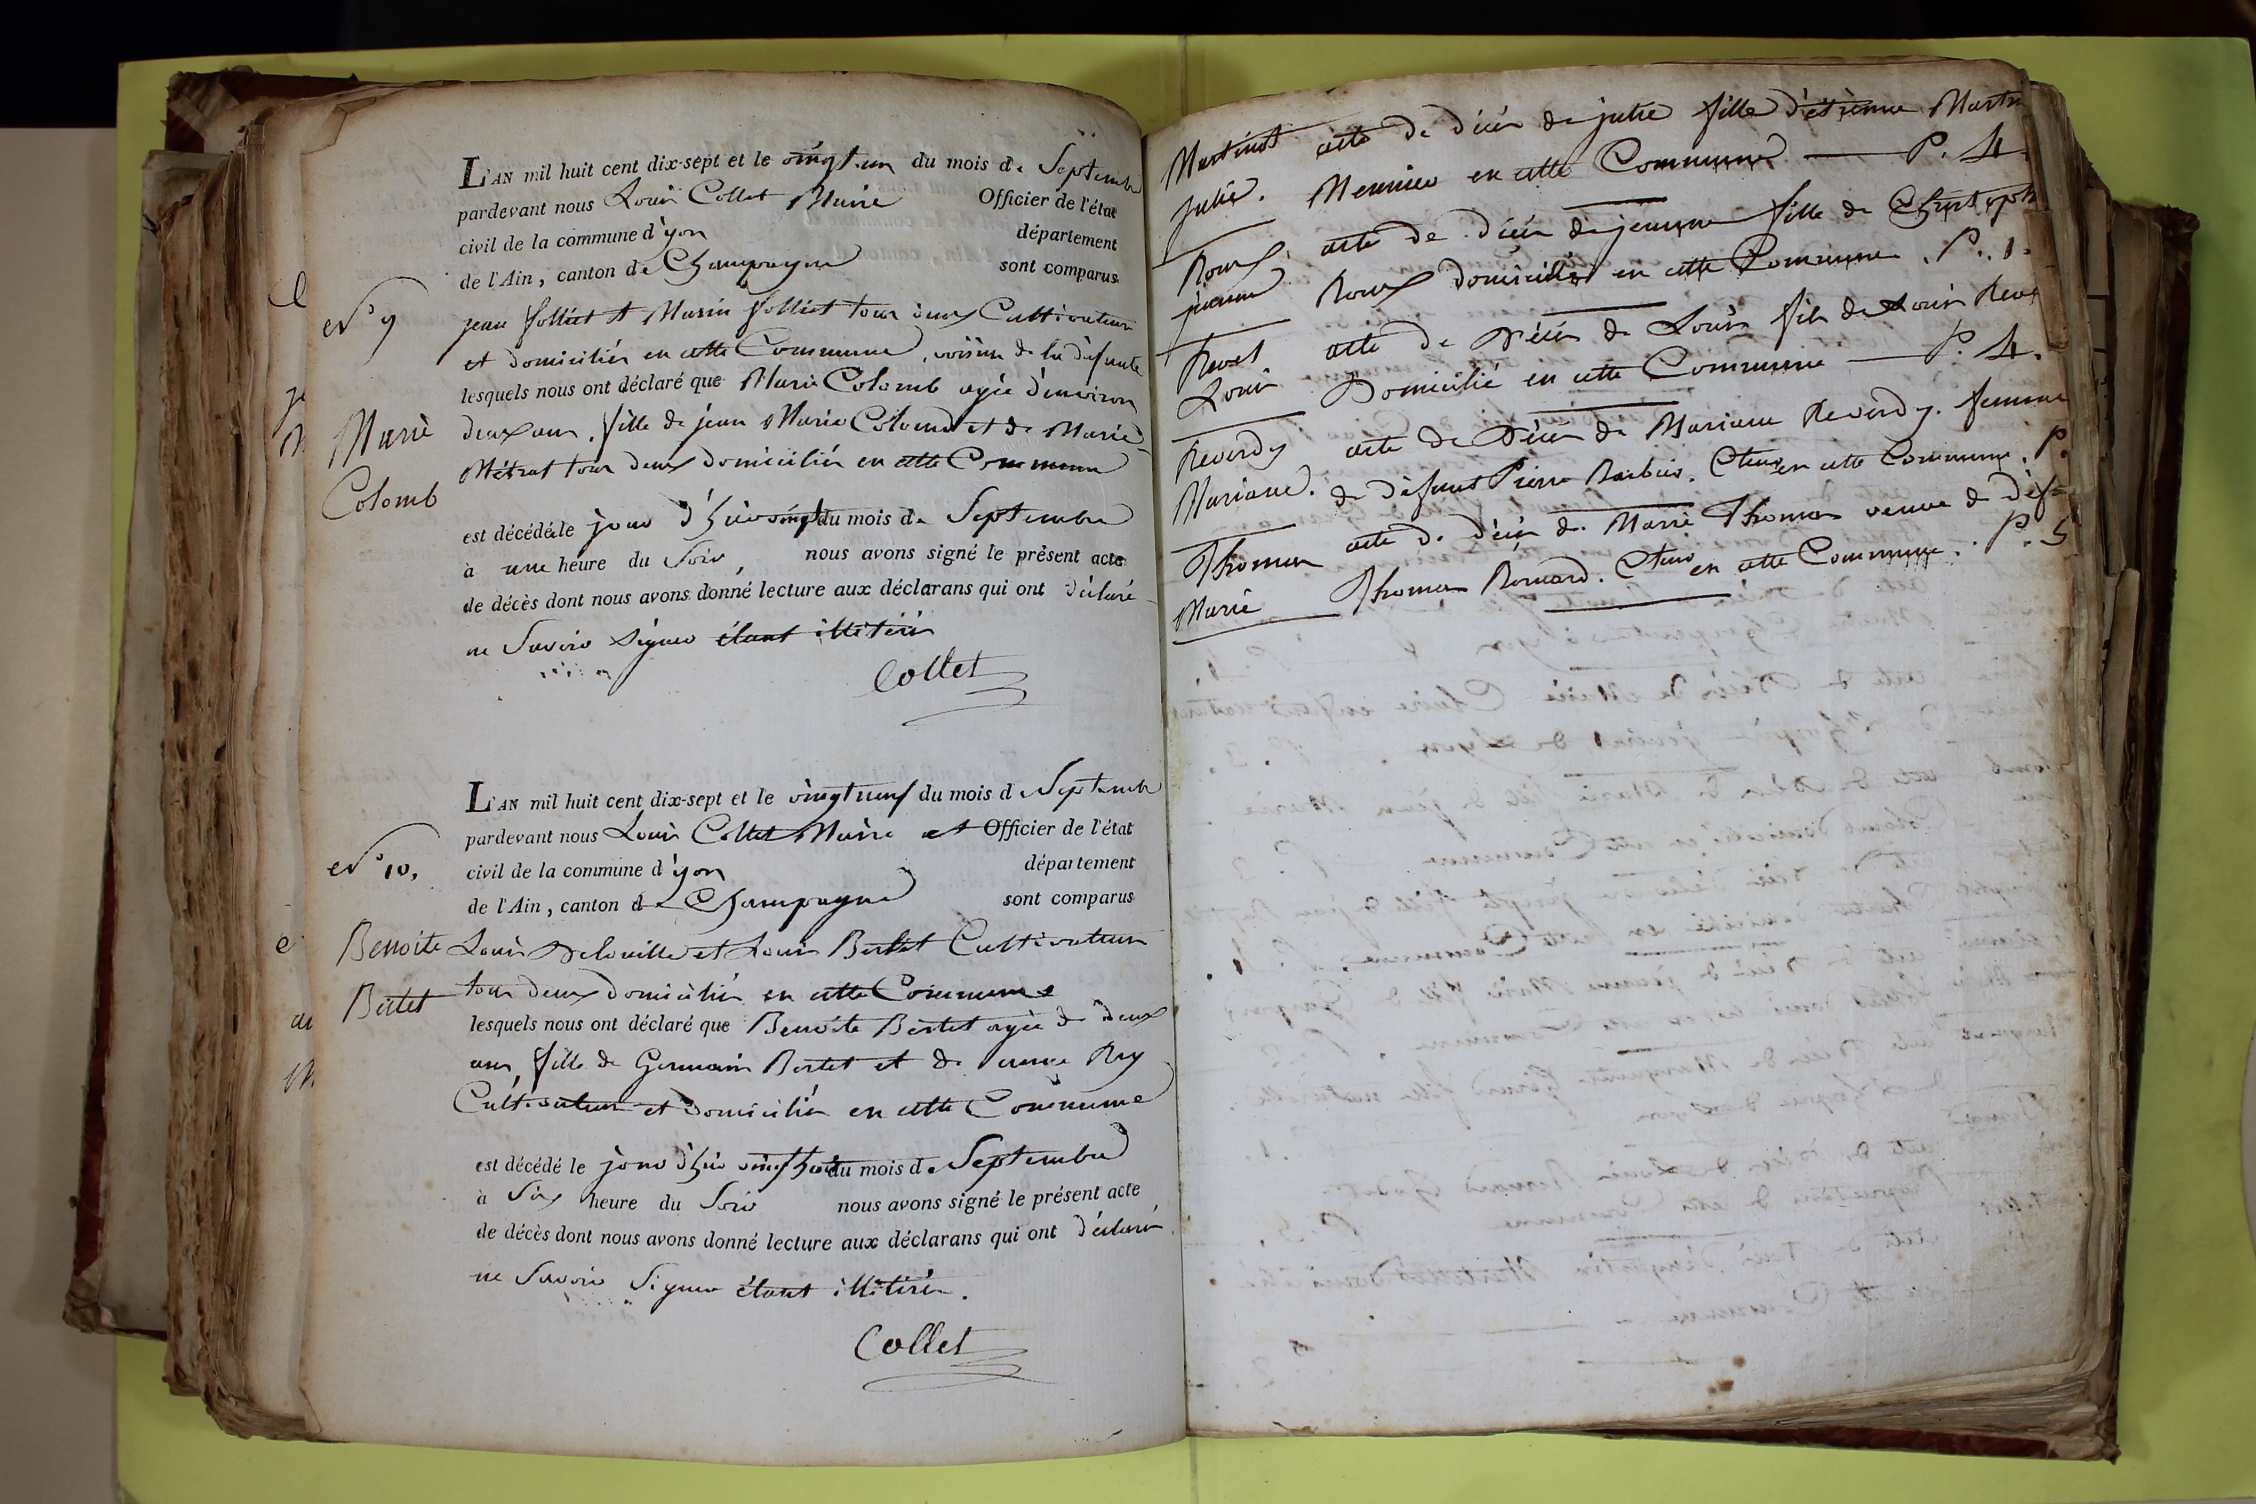 L'AN mil huit cent dix-sept et le vingt un du mois de Septembre
pardevant nous Louis Collet Maire Officier de l'état
civil de la commune d'yon département
de l'Ain, canton de Champagne sont comparus
N° 9
jean folliet et Marin folliet tous deux Cultivateurs
et domiciliés en cette Commune, voisins de la défunte
lesquels nous ont déclaré que Marie Colomb agée d'environ
Marie
Colomb
deux ans, fille de jean Marie Colomb et de Marie
Métrat tous deux domiciliés en cette Commune
est décédée le jour d'hier vingt du mois de Septembre
à une heure du Soir, nous avons signé le présent acte
de décès dont nous avons donné lecture aux déclarans qui ont déclaré
ne Savoir Signer étant illitérés
Collet
L'AN mil huit cent dix-sept et le vingt neuf du mois de Septembre
pardevant nous Louis Collet Maire et Officier de l'état
N° 10,
civil de la commune d'yon département
de l'Ain, canton de Champagne sont comparus
Benoite
Bertet
Louis Delouille et Louis Bertet Cultivateurs
tous deux domiciliés en cette Commune
lesquels nous ont déclaré que Benoite Bertet agée de deux
ans, fille de Germain Bertet et de Rey
Cultivateurs et domiciliés en cette Commune
est décédé le jour d'hier vingt huit du mois de Septembre
à Six heure du Soir nous avons signé le présent acte
de décès dont nous avons donné lecture aux déclarans qui ont déclaré
ne Savoir Signer étant illitérés.
Collet
Martinot acte de décès de julie fille d'étienne Martin
julie. Meunier en cette Commune P. 4.
Roux acte de décès de jeanne fille de Christoph
jeanne Roux domicilié en cette Commune. P. 1.
Revet acte de Décès de Louis fils de Louis Reve
Louis Domicilié en cette Commune P. 4.
Reverdy acte de Décès de Mariane Reverdy. femme
Mariane. de défunt Pierre Barbier. Cteur en cette Commune. P.
Thomas acte de décès de Marie Thomas veuve de déf
Marie Thomas Bernard. Cteur en cette Commune. P. 5